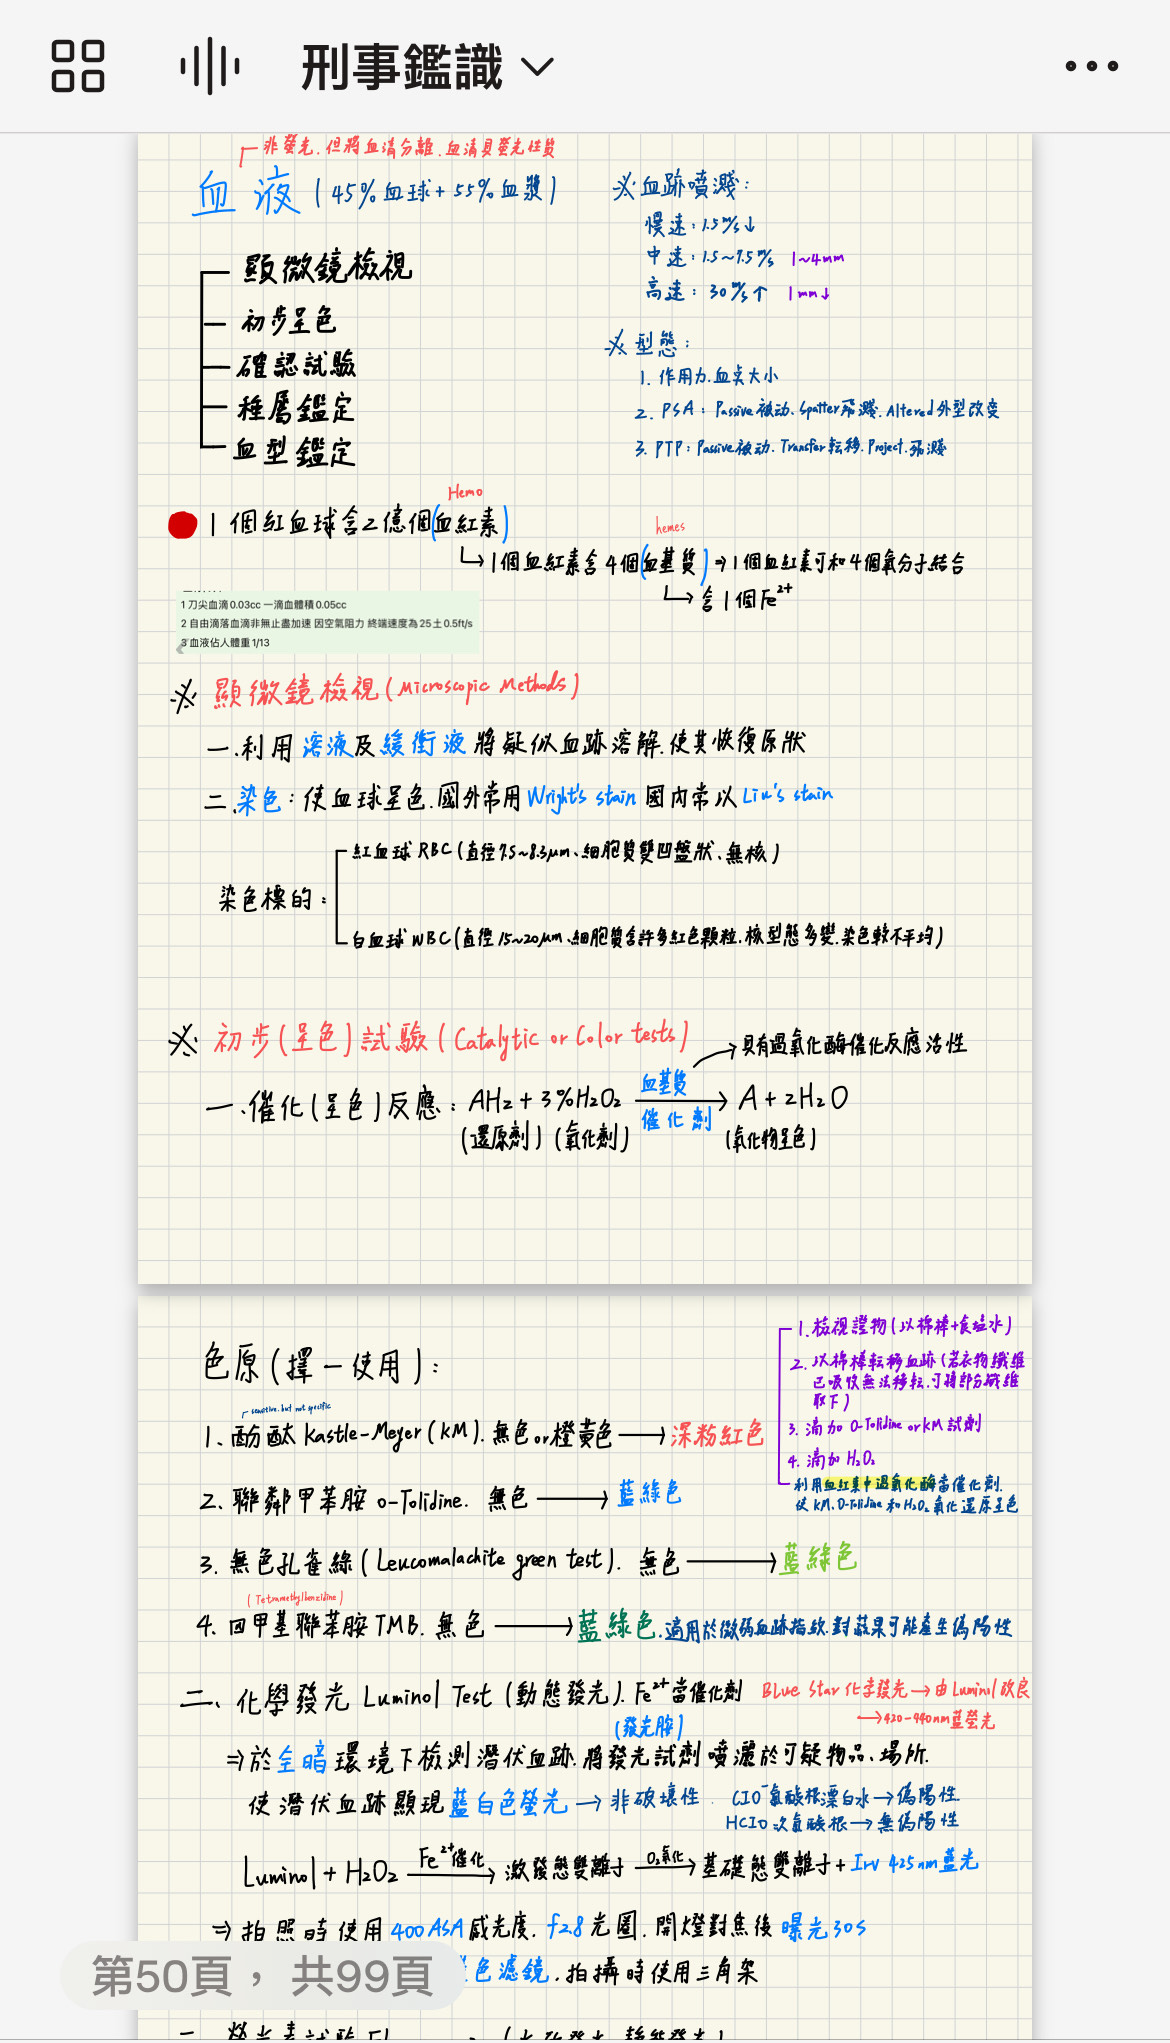 刑事鑑識
非螢光.但將血清分離.血清具螢光性質
血液(45%血球+55%血漿)
※血跡噴濺:
慢速:1.5m/s↓
中速:1.5~7.5m/s 1~4mm
高速:30m/s↑ 1mm↓
顯微鏡檢視
初步呈色
確認試驗
種屬鑑定
血型鑑定
※型態:
1. 作用力.血点大小
2. PSA: Passive被动、Spatter飛濺、Altered外型改变
3. PTP: Passive被动、Transfer転移、Project.飛濺
Hemo
1個紅血球含2億個(血紅素)
hemes
↳1個血紅素含4個(血基質)⇒1個血紅素可和4個氧分子結合
↳含1個Fe²⁺
1 刀尖血滴0.03cc 一滴血體積0.05cc
2 自由滴落血滴非無止盡加速 因空氣阻力 終端速度為25±0.5ft/s
3 血液佔人體重1/13
※顯微鏡檢視(Microscopic Methods)
一.利用溶液及緩衝液將疑似血跡溶解.使其恢復原狀
二.染色:使血球呈色.國外常用Wright's stain國內常以Liu's stain
紅血球RBC(直徑7.5~8.3μm、細胞質雙凹盤狀、無核)
染色標的:
白血球WBC(直徑15~20μm、細胞質含許多紅色顆粒.核型態多變.染色較不平均)
※初步(呈色)試驗(Catalytic or Color tests)
具有過氧化酶催化反應活性
一.催化(呈色)反應:AH₂+3%H₂O₂ 血基質 催化劑 → A+2H₂O
(還原劑)(氧化劑) (氧化物呈色)
色原(擇一使用):
1.檢視證物(以棉棒+食塩水)
2.以棉棒転移血跡(若衣物纖維
已吸收無法移転.可將部分纖維
取下)
3.滴加O-Tolidine or KM試劑
4.滴加H₂O₂
利用血紅素中過氧化酶當催化劑.
使KM、O-Tolidine和H₂O₂氧化還原呈色
sensitive. but not specific
1、酚酞Kastle-Meyer(KM).無色or橙黃色→深粉紅色
2、聯鄰甲苯胺o-Tolidine. 無色→藍綠色
3. 無色孔雀綠(Leucomalachite green test). 無色→藍綠色
(Tetramethylbenzidine)
4. 四甲基聯苯胺TMB. 無色→藍綠色.適用於微弱血跡指紋.對蔬果可能產生偽陽性
二、化學發光 Luminol Test (動態發光). Fe²⁺當催化劑
(發光胺)
Blue Star化学發光→由Luminol改良
↪420-440nm藍螢光
⇒於全暗環境下檢測潛伏血跡.將發光試劑噴灑於可疑物品、場所.
使潛伏血跡顯現藍白色螢光→非破壞性
ClO⁻氯酸根漂白水→偽陽性
HClO次氯酸根→無偽陽性
Luminol+H₂O₂ Fe²⁺催化→激發態雙離子 O₂氧化→基礎態雙離子+ 425nm藍光
⇒拍照時使用400ASA感光度. f2.8光圈.開燈對焦後曝光30s
色濾鏡.拍攝時使用三角架
第50頁, 共99頁